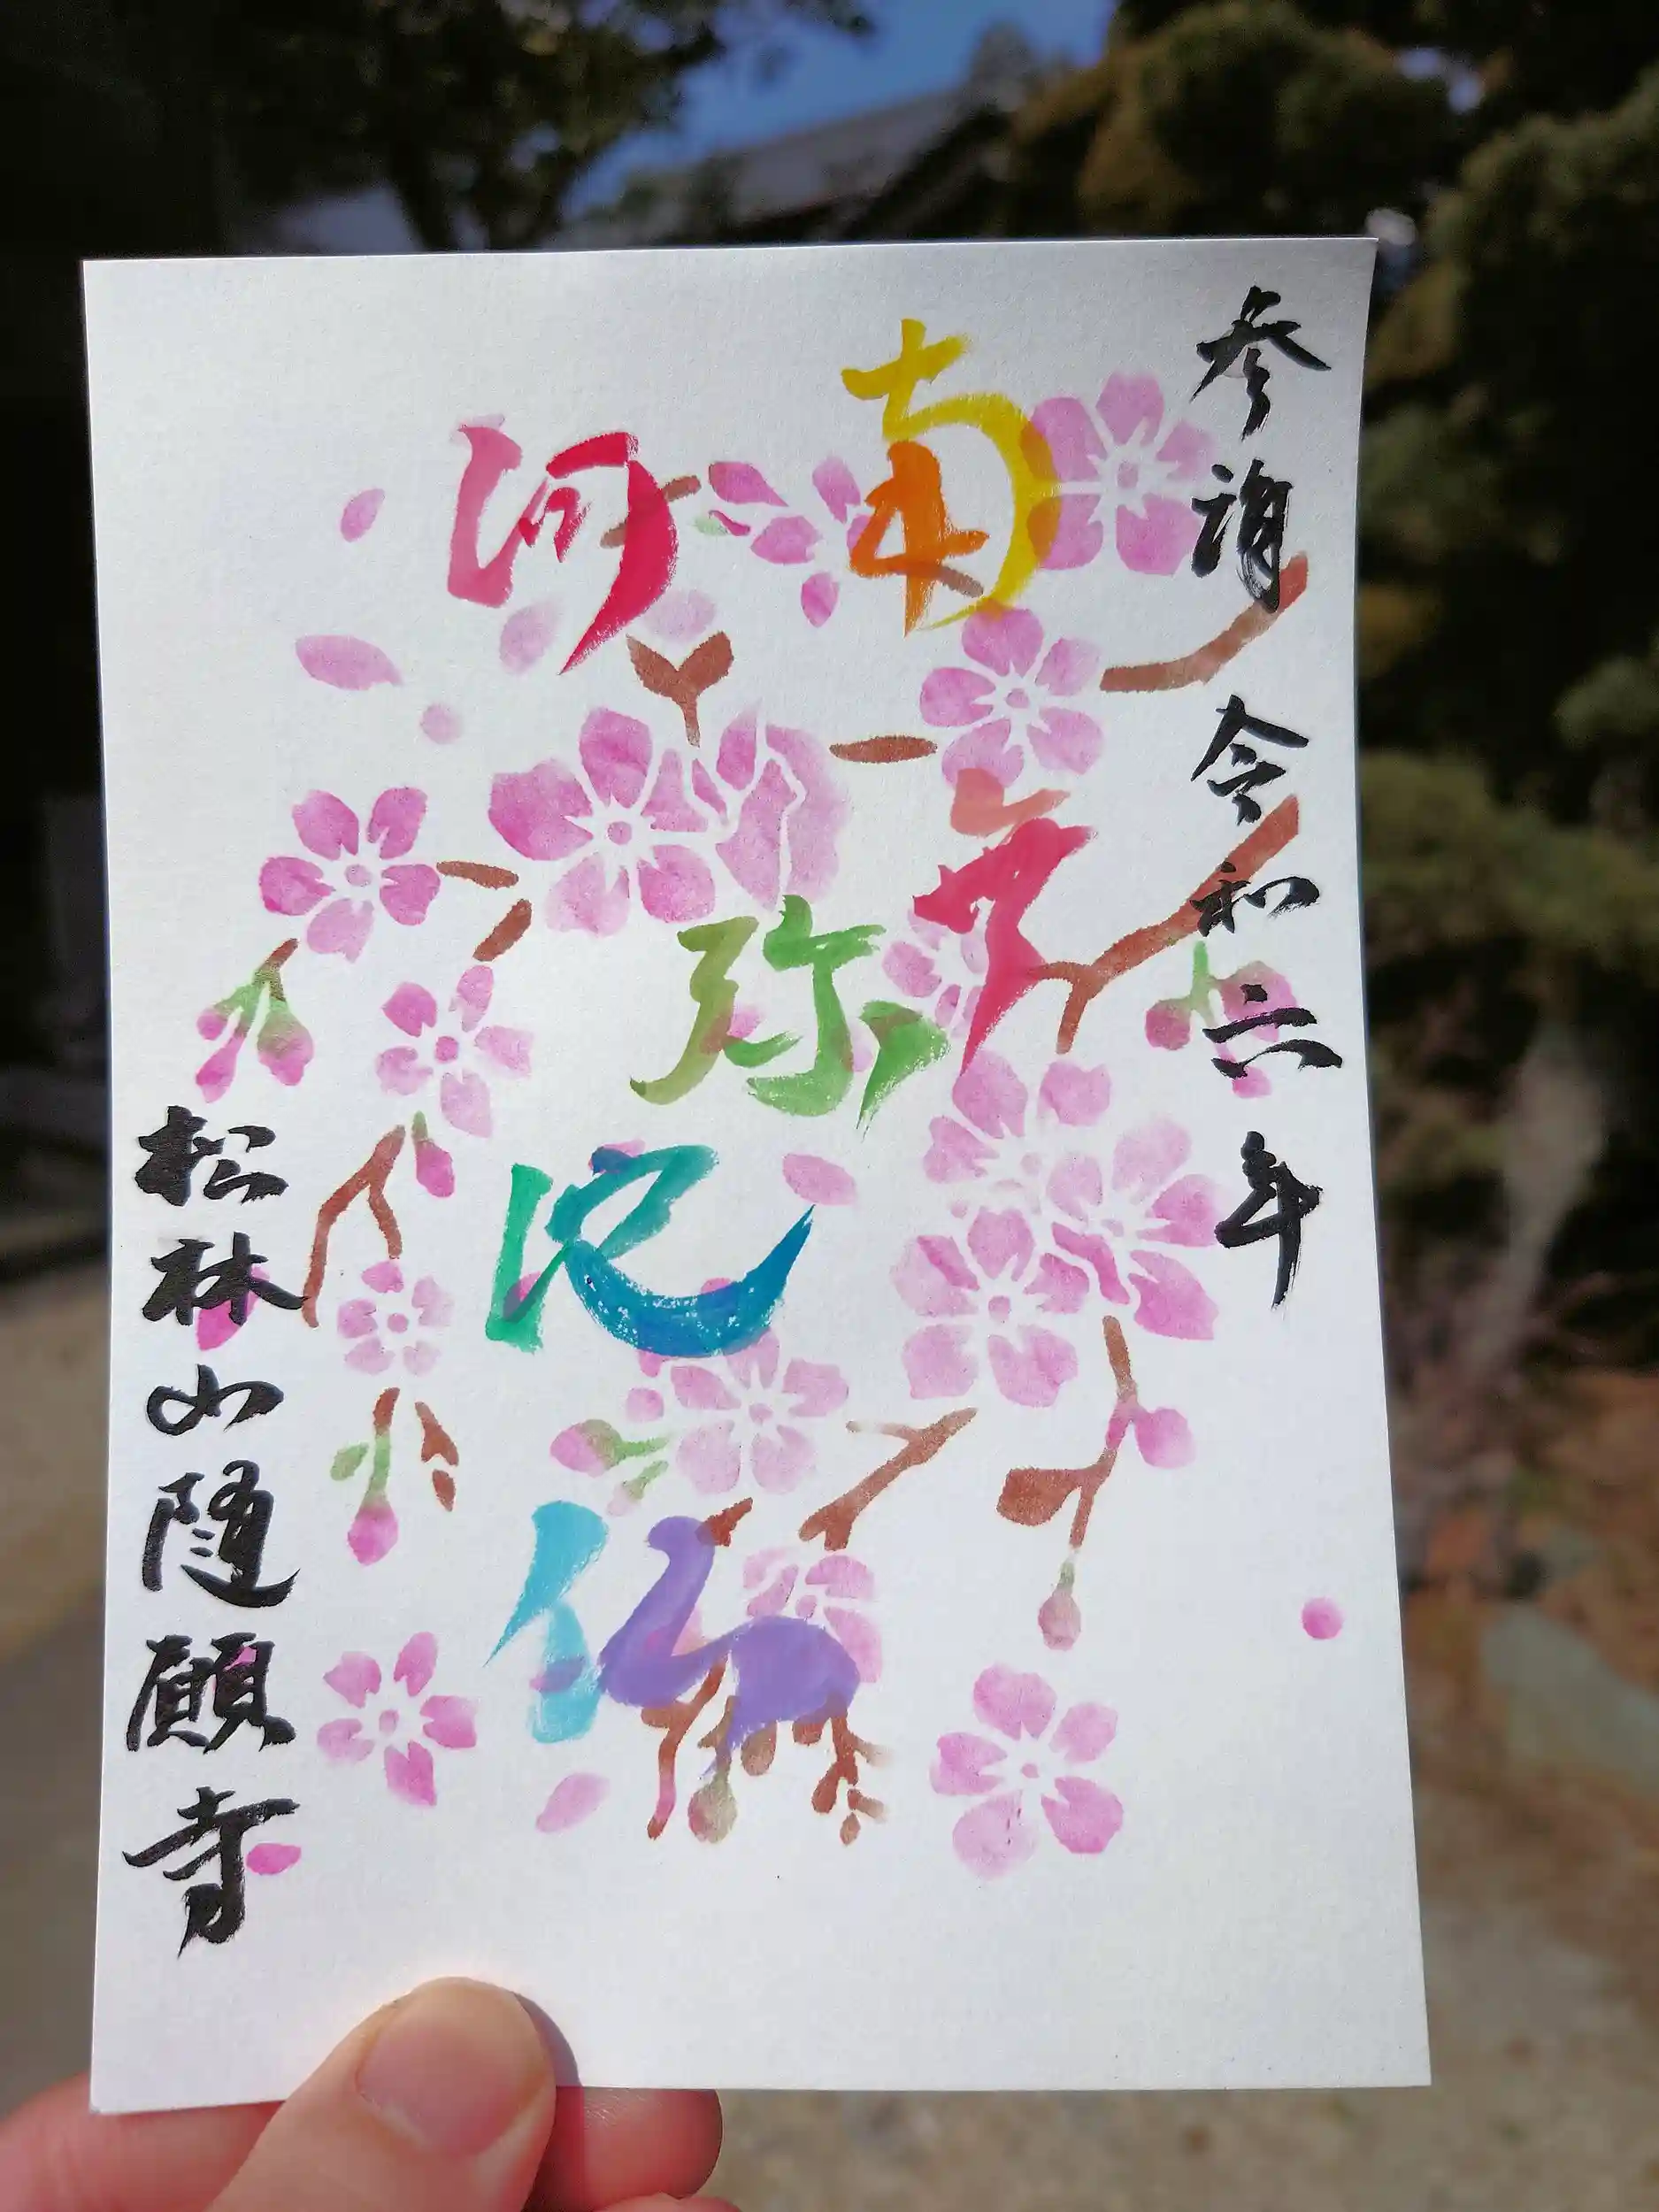 参詣 令和六年
南无
阿弥陀仏
松林山随願寺